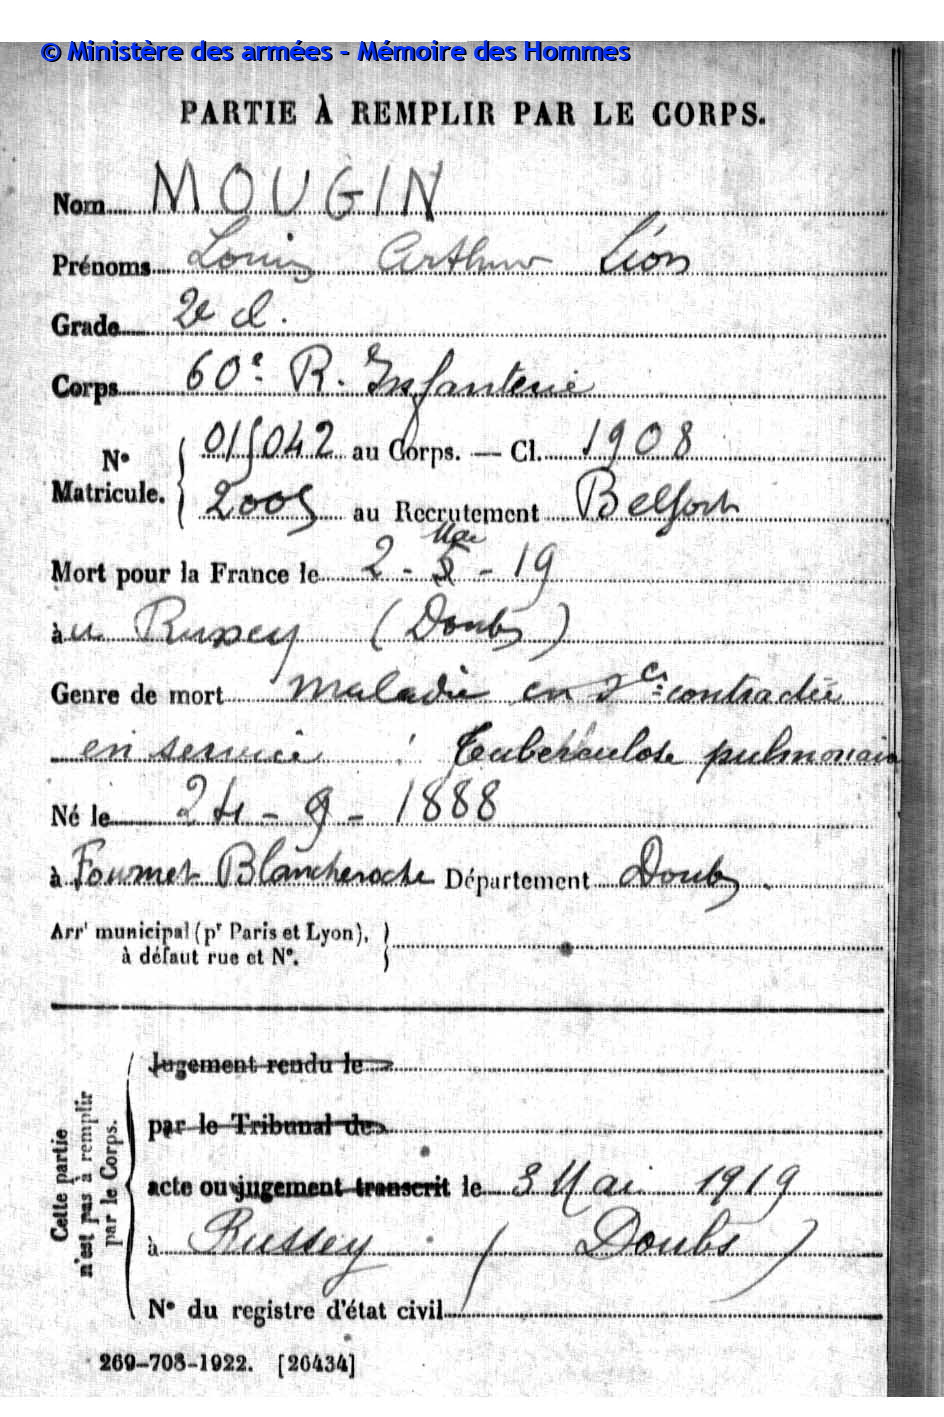 © Ministère des armées - Mémoire des Hommes
PARTIE À REMPLIR PAR LE CORPS.
Nom MOUGIN
Prénoms Louis Arthur Léon
Grade 2e cl.
Corps 60e R. Infanterie
N° Matricule. 015042 au Corps. — Cl. 1908
2005 au Recrutement Belfort
Mai
Mort pour la France le 2 - 5 - 19
àu Russey (Doubs)
Genre de mort maladie contractée
en service Tuberculose pulmonaire
Né le 24 - 9 - 1888
à Fournet Blancheroche Département Doubs
Arrt municipal (pr Paris et Lyon),
à défaut rue et N°.
Jugement rendu le
par le Tribunal de
acte ou jugement transcrit le 3 Mai 1919
à Russey (Doubs)
N° du registre d'état civil
Cette partie
n'est pas à remplir
par le Corps.
269-708-1922. [26434]